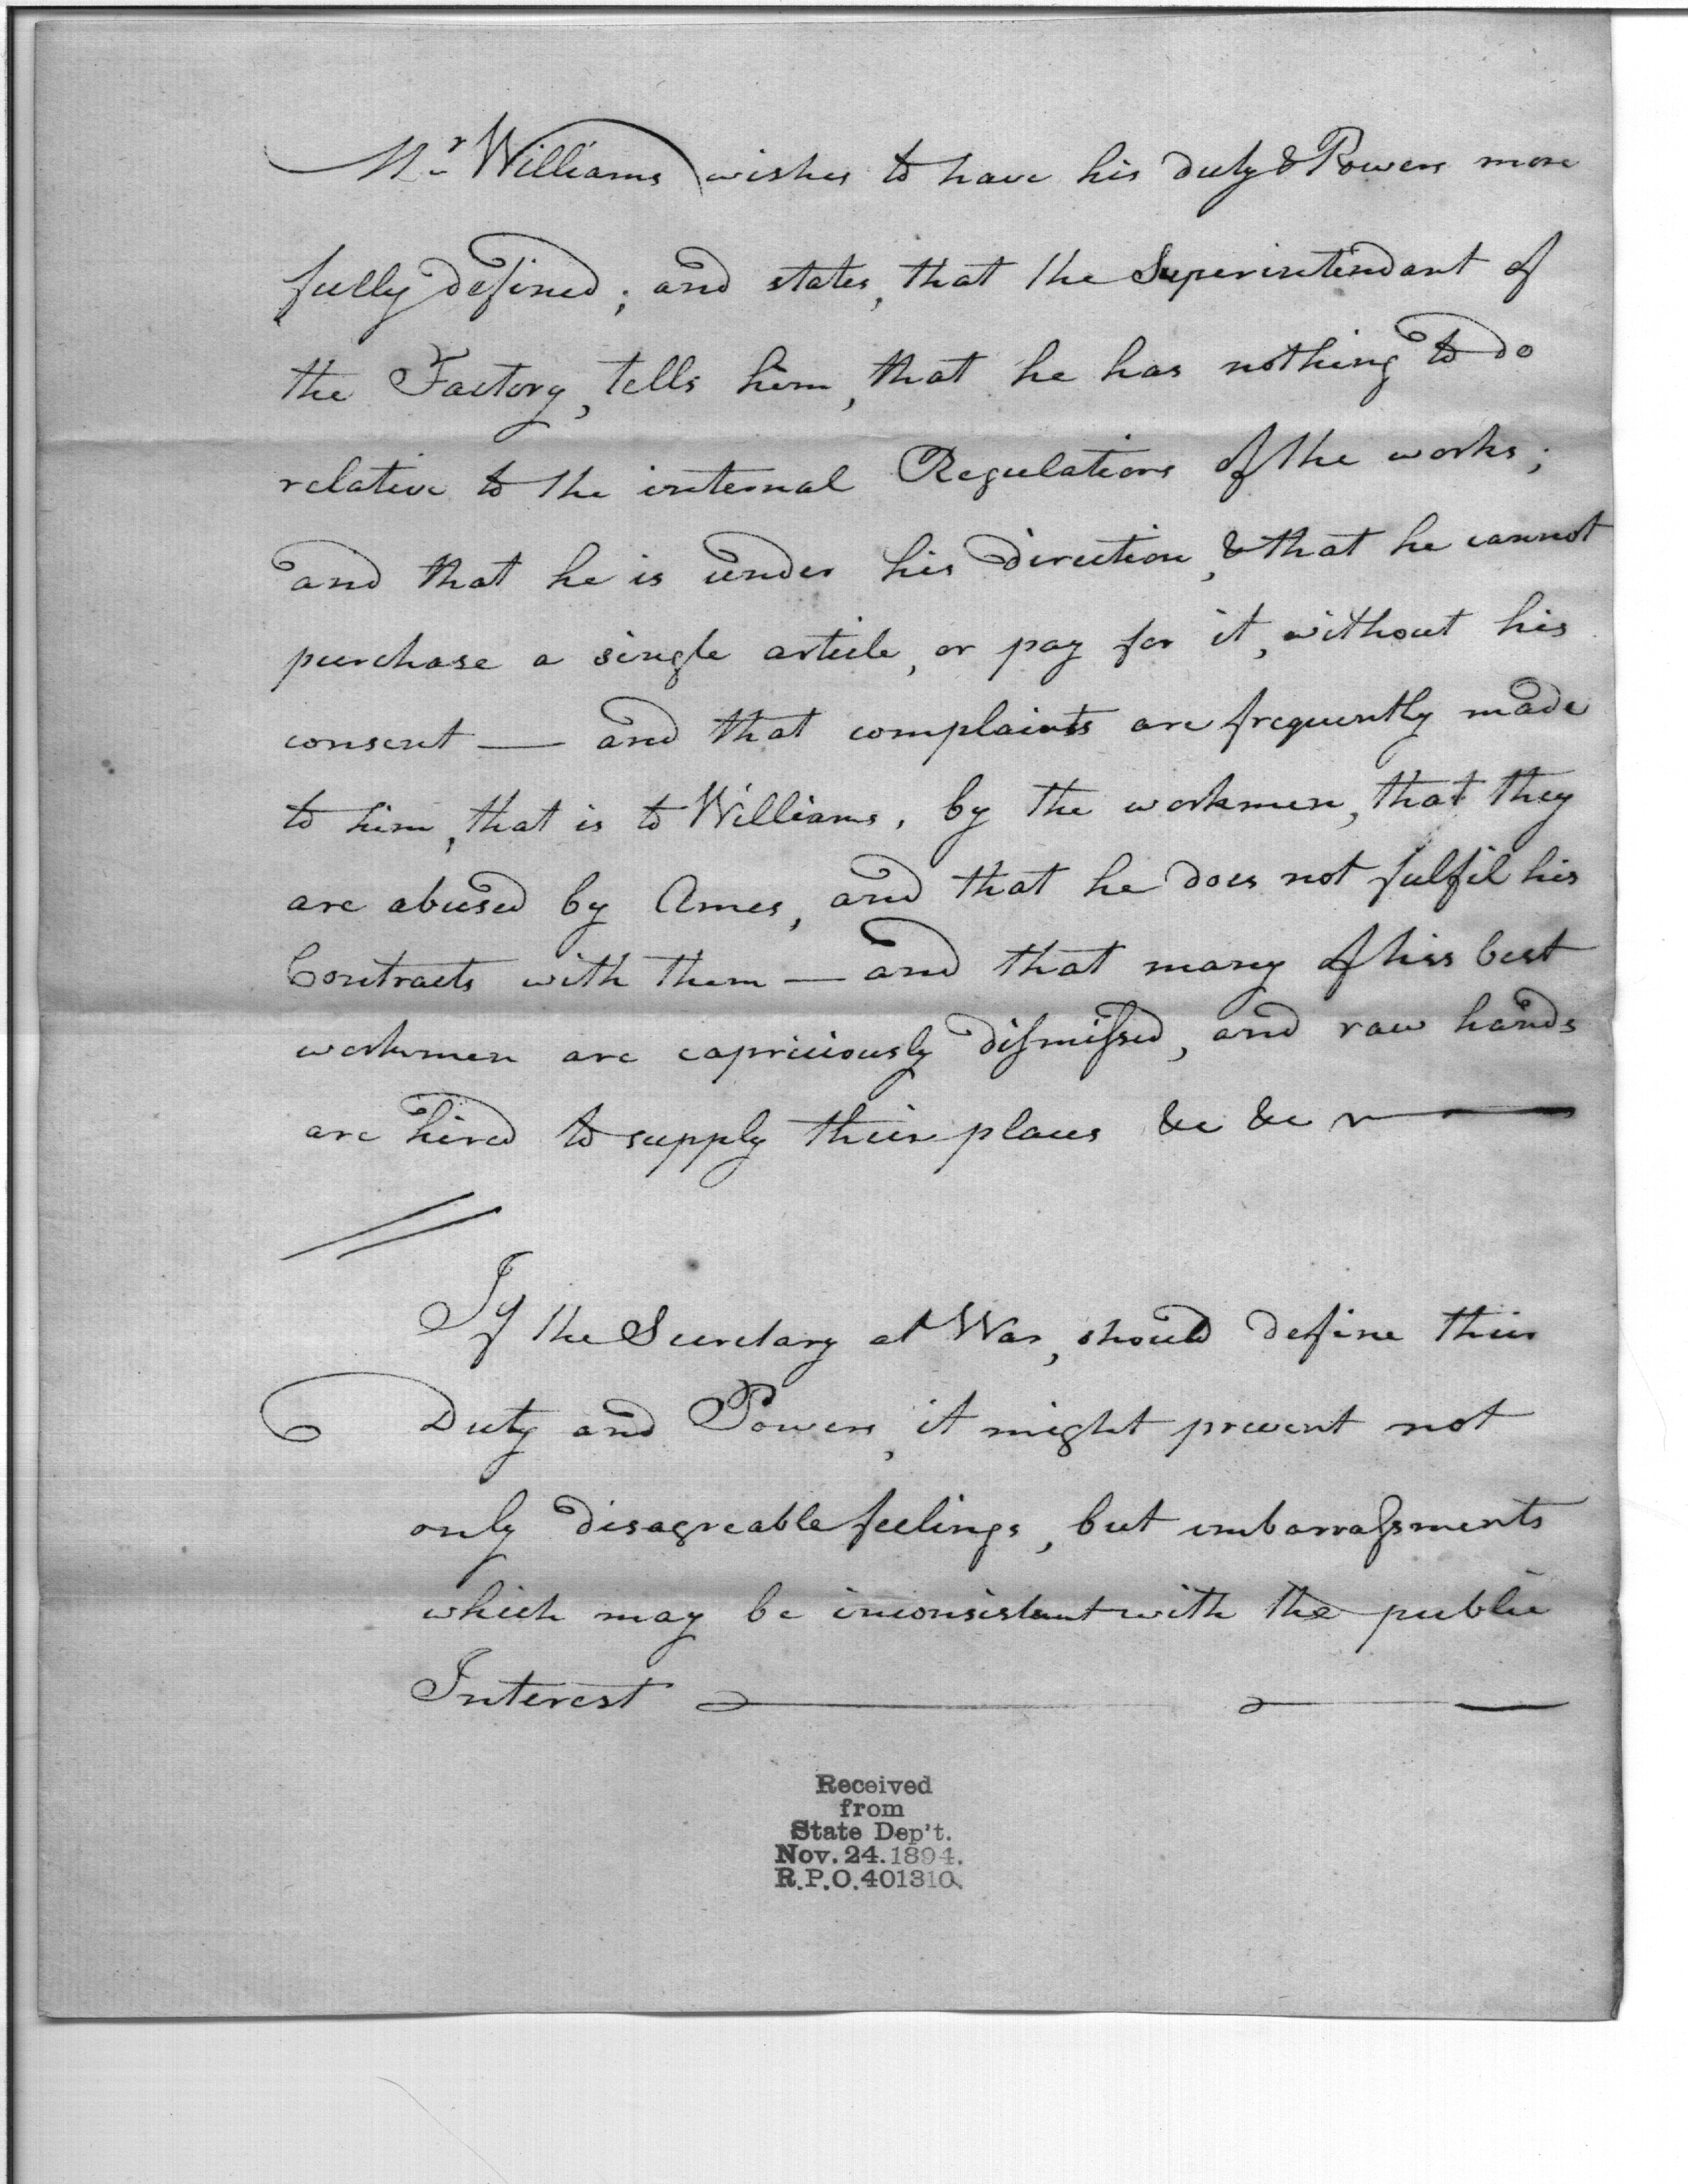 Mr Williams wishes to have his duty & Powers more
fully defined; and states, that the Superintendant of
the Factory, tells him, that he has nothing to do
relative to the internal Regulations of the works;
and that he is under his direction, & that he cannot
purchase a single article, or pay for it, without his
consent — and that complaints are frequently made
to him, that is to Williams, by the workmen, that they
are abused by Ames, and that he does not fulfil his
Contracts with them — and that many of his best
workmen are capriciously dismissed, and raw hands
are hired to supply their places &c &c
If the Secretary at War, should define their
Duty and Powers, it might prevent not
only disagreable feelings, but embarrassments
which may be inconsistent with the public
Interest
Received
from
State Dep't.
Nov. 24. 1894.
R.P.O. 401310.